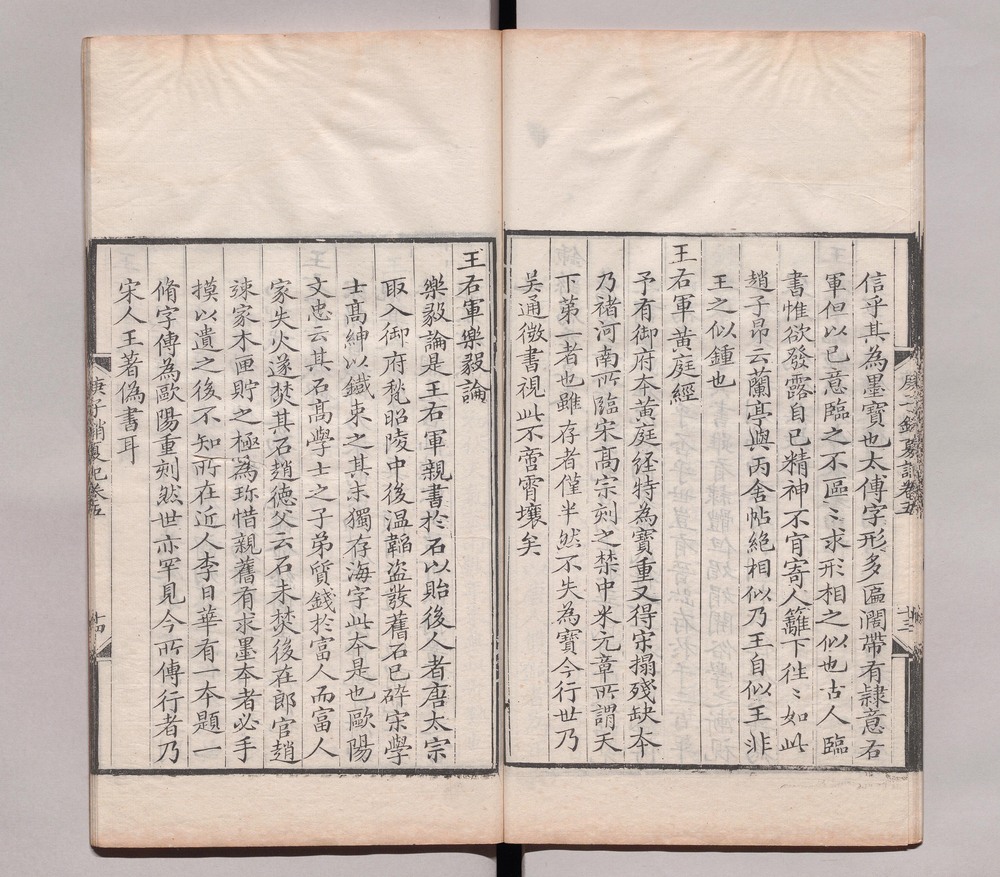 信乎其為墨寶也太傅字形多匾濶帶有隷意右
軍但以已意臨之不區〻求形相之似也古人臨
書惟欲發露自已精神不肎寄人籬下徃〻如此
趙子昂云蘭亭與丙舍帖絶相似乃王自似王非
王之似鍾也
王右軍黃庭經
予有御府本黃庭経特為寶重又得宋搨殘缺本
乃褚河南所臨宋髙宗刻之禁中米元章所謂天
下第一者也雖存者僅半然不失為寶今行世乃
吴通微書視此不啻霄壤矣
庚子銷夏記卷五
十三
王右軍樂毅論
樂毅論是王右軍親書於石以貽後人者唐太宗
取入御府𣩵昭陵中後温韜盗發舊石已碎宋學
士髙紳以鐡束之其末獨存海字此本是也歐陽
文忠云其石髙學士之子弟質錢於富人而富人
家失火遂焚其石趙德父云石未焚後在郎官趙
竦家木匣貯之極為珎惜親舊有求墨本者必手
摸以遺之後不知所在近人李日華有一本題一
脩字傳為歐陽重刻然世亦罕見今所傳行者乃
宋人王著偽書耳
庚子銷夏記卷五
十四